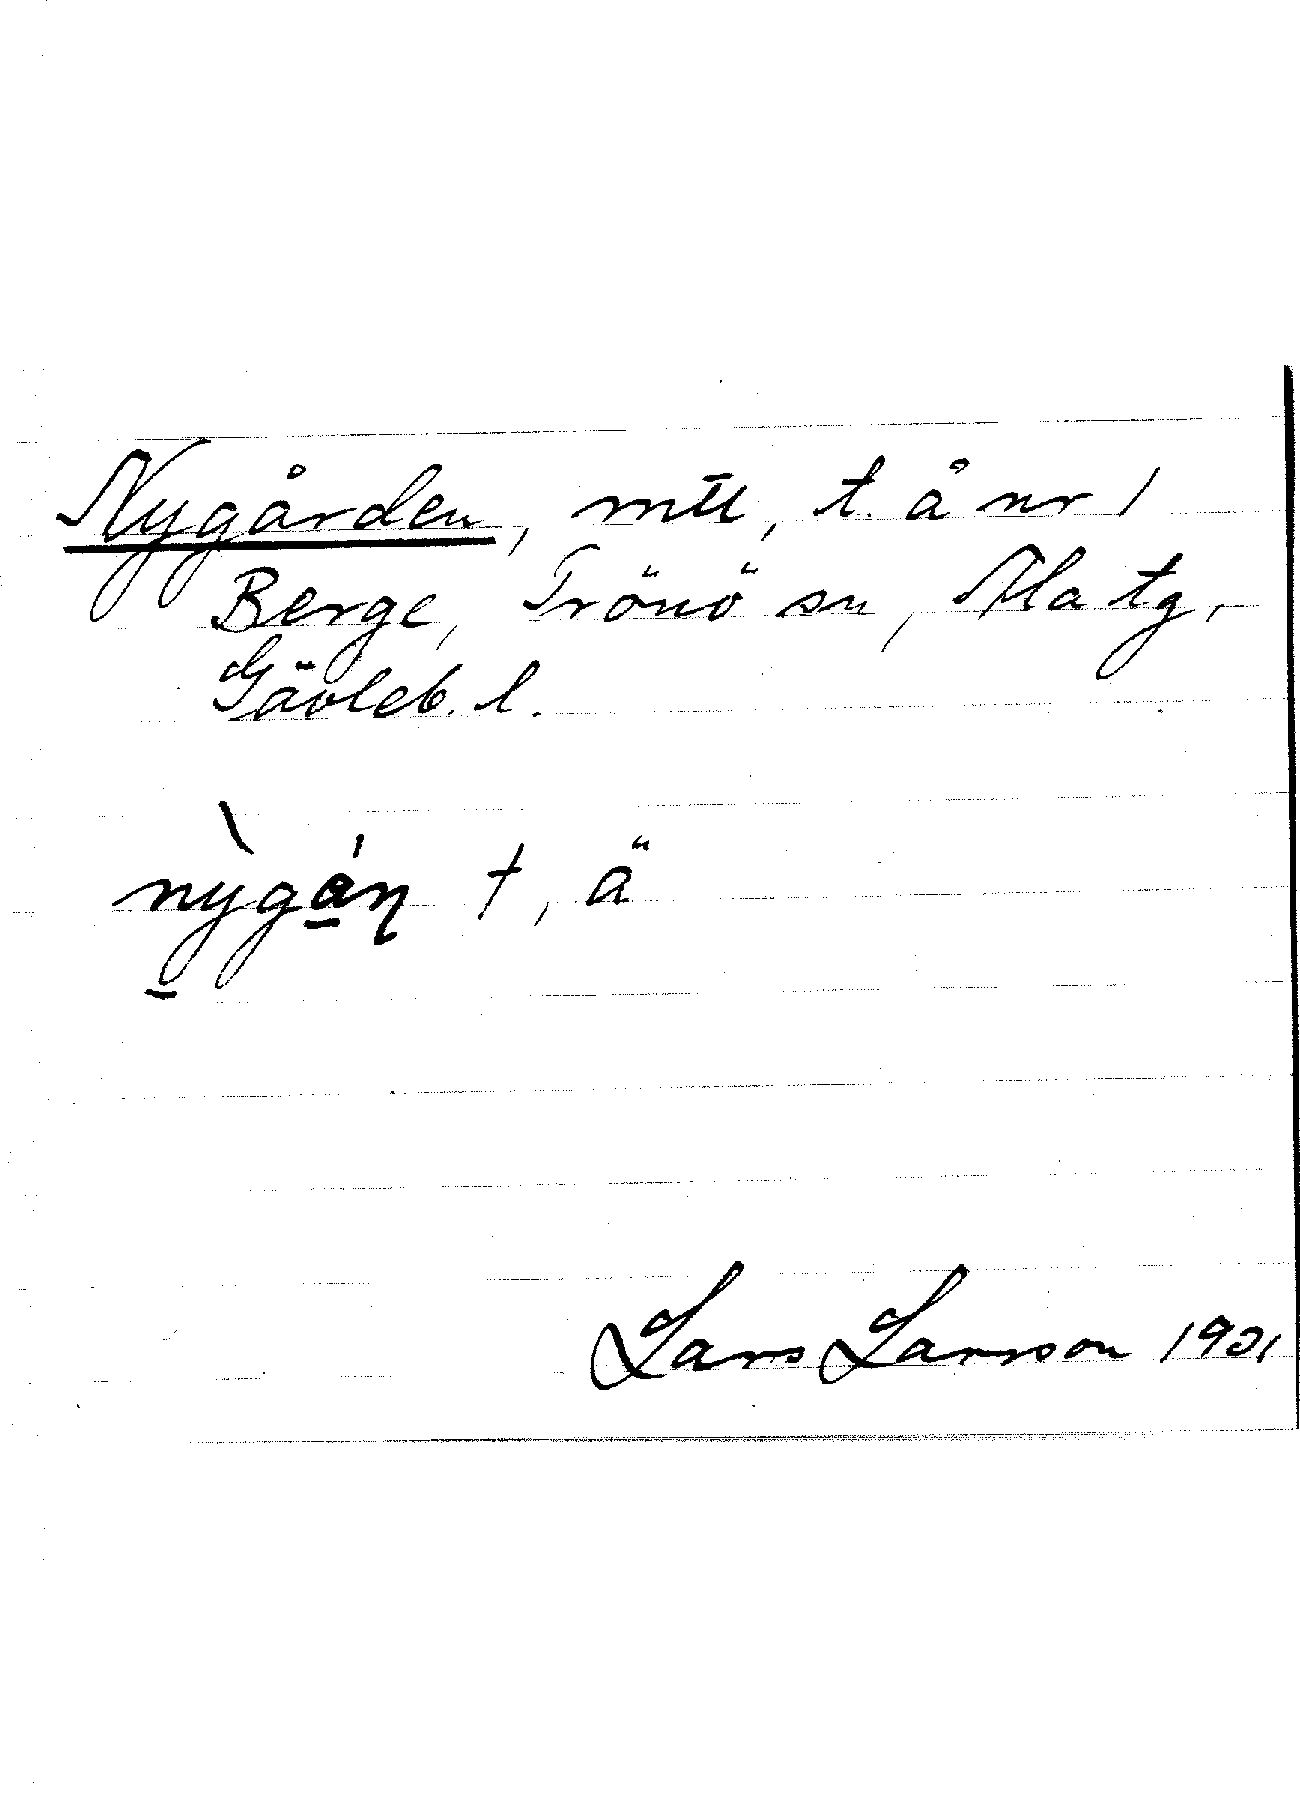 Nygården, mtl, t. å nr 1
Berge, Trönö sn, Ala tg,
Gävleb. l.
nỳgán t, ä
Lars Larsson 1901